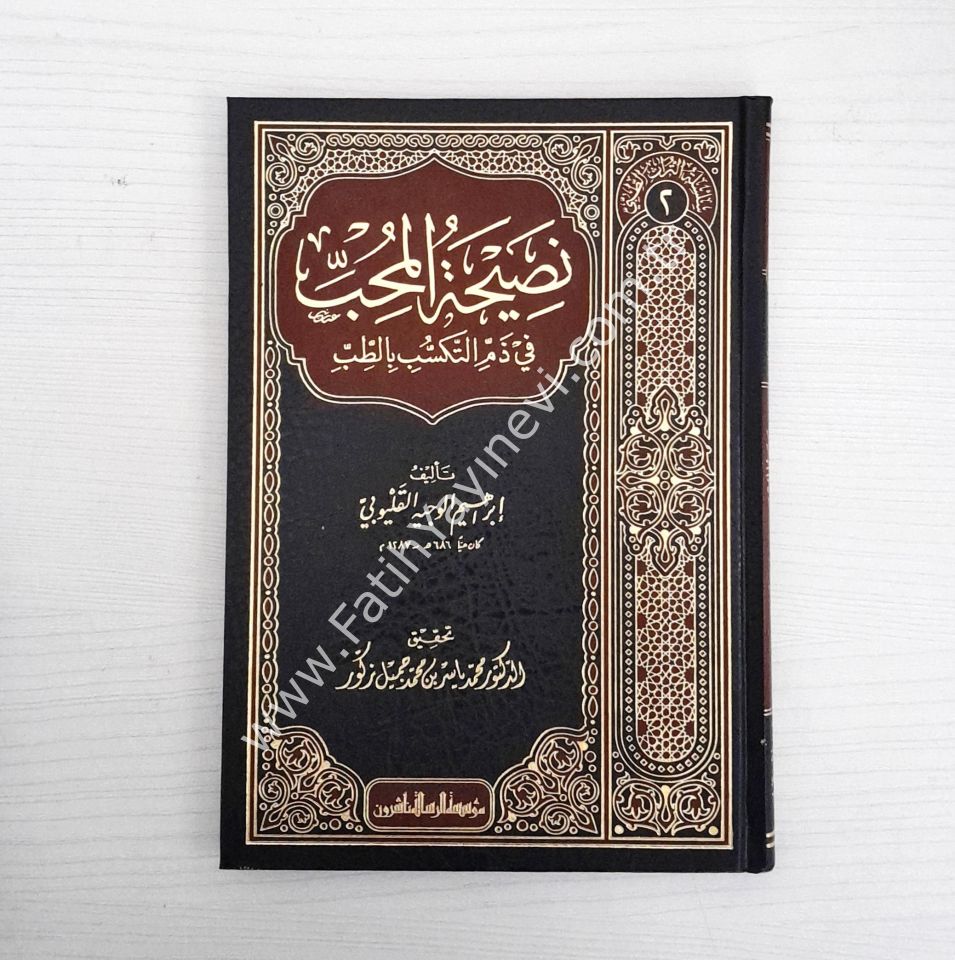 سلسلة التراث الطبي
٢
نَصِيْحَةُ المُحِبِّ
فِي ذَمِّ التَّكَسُّبِ بِالطِّبِّ
تَأْلِيْفُ
إبراهيم الوجيه القَلْيُوبي
كان حيًا ٦٨٦ هـ - ١٢٨٧ م
تحقيق
الدكتور محمد ياسر بن محمد جميل زكور
مؤسسة الرسالة ناشرون
www.FatihYayinevi.com